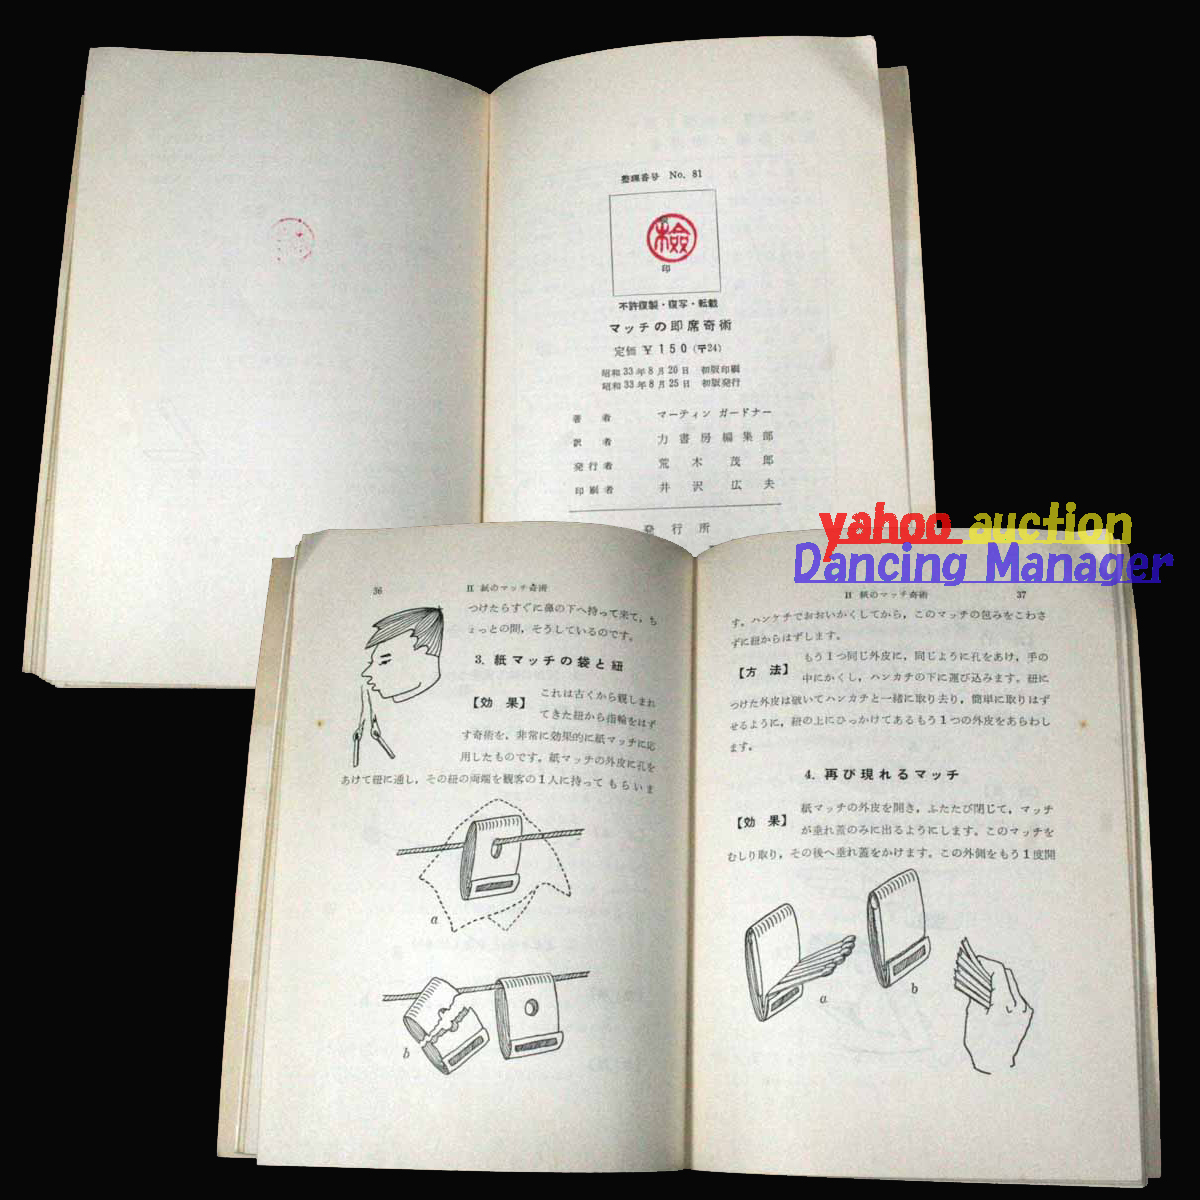 整理番号 No. 81
検
印
不許複製・複写・転載
マッチの即席奇術
定価 ¥ 150 (〒24)
昭和33年8月20日 初版印刷
昭和33年8月25日 初版発行
著者 マーティン ガードナー
訳者 力書房編集部
発行者 荒木茂郎
印刷者 井沢広夫
発行所
yahoo auction
Dancing Manager
36 II 紙のマッチ奇術
つけたらすぐに鼻の下へ持って来て，ち
ょっとの間，そうしているのです。
3. 紙マッチの袋と紐
【効果】 これは古くから親しまれ
てきた紐から指輪をはず
す奇術を，非常に効果的に紙マッチに応
用したものです。紙マッチの外皮に孔を
あけて紐に通し，その紐の両端を観客の1人に持ってもらいま
a
b
II 紙のマッチ奇術 37
す。ハンケチでおおいかくしてから，このマッチの包みをこわさ
ずに紐からはずします。
【方法】 もう1つ同じ外皮に，同じように孔をあけ，手の
中にかくし，ハンカチの下に運び込みます。紐に
つけた外皮は破いてハンカチと一緒に取り去り，簡単に取りはず
せるように，紐の上にひっかけてあるもう1つの外皮をあらわし
ます。
4. 再び現れるマッチ
【効果】 紙マッチの外皮を開き，ふたたび閉じて，マッチ
が垂れ蓋のみに出るようにします。このマッチを
むしり取り，その後へ垂れ蓋をかけます。この外側をもう1度開
a
b